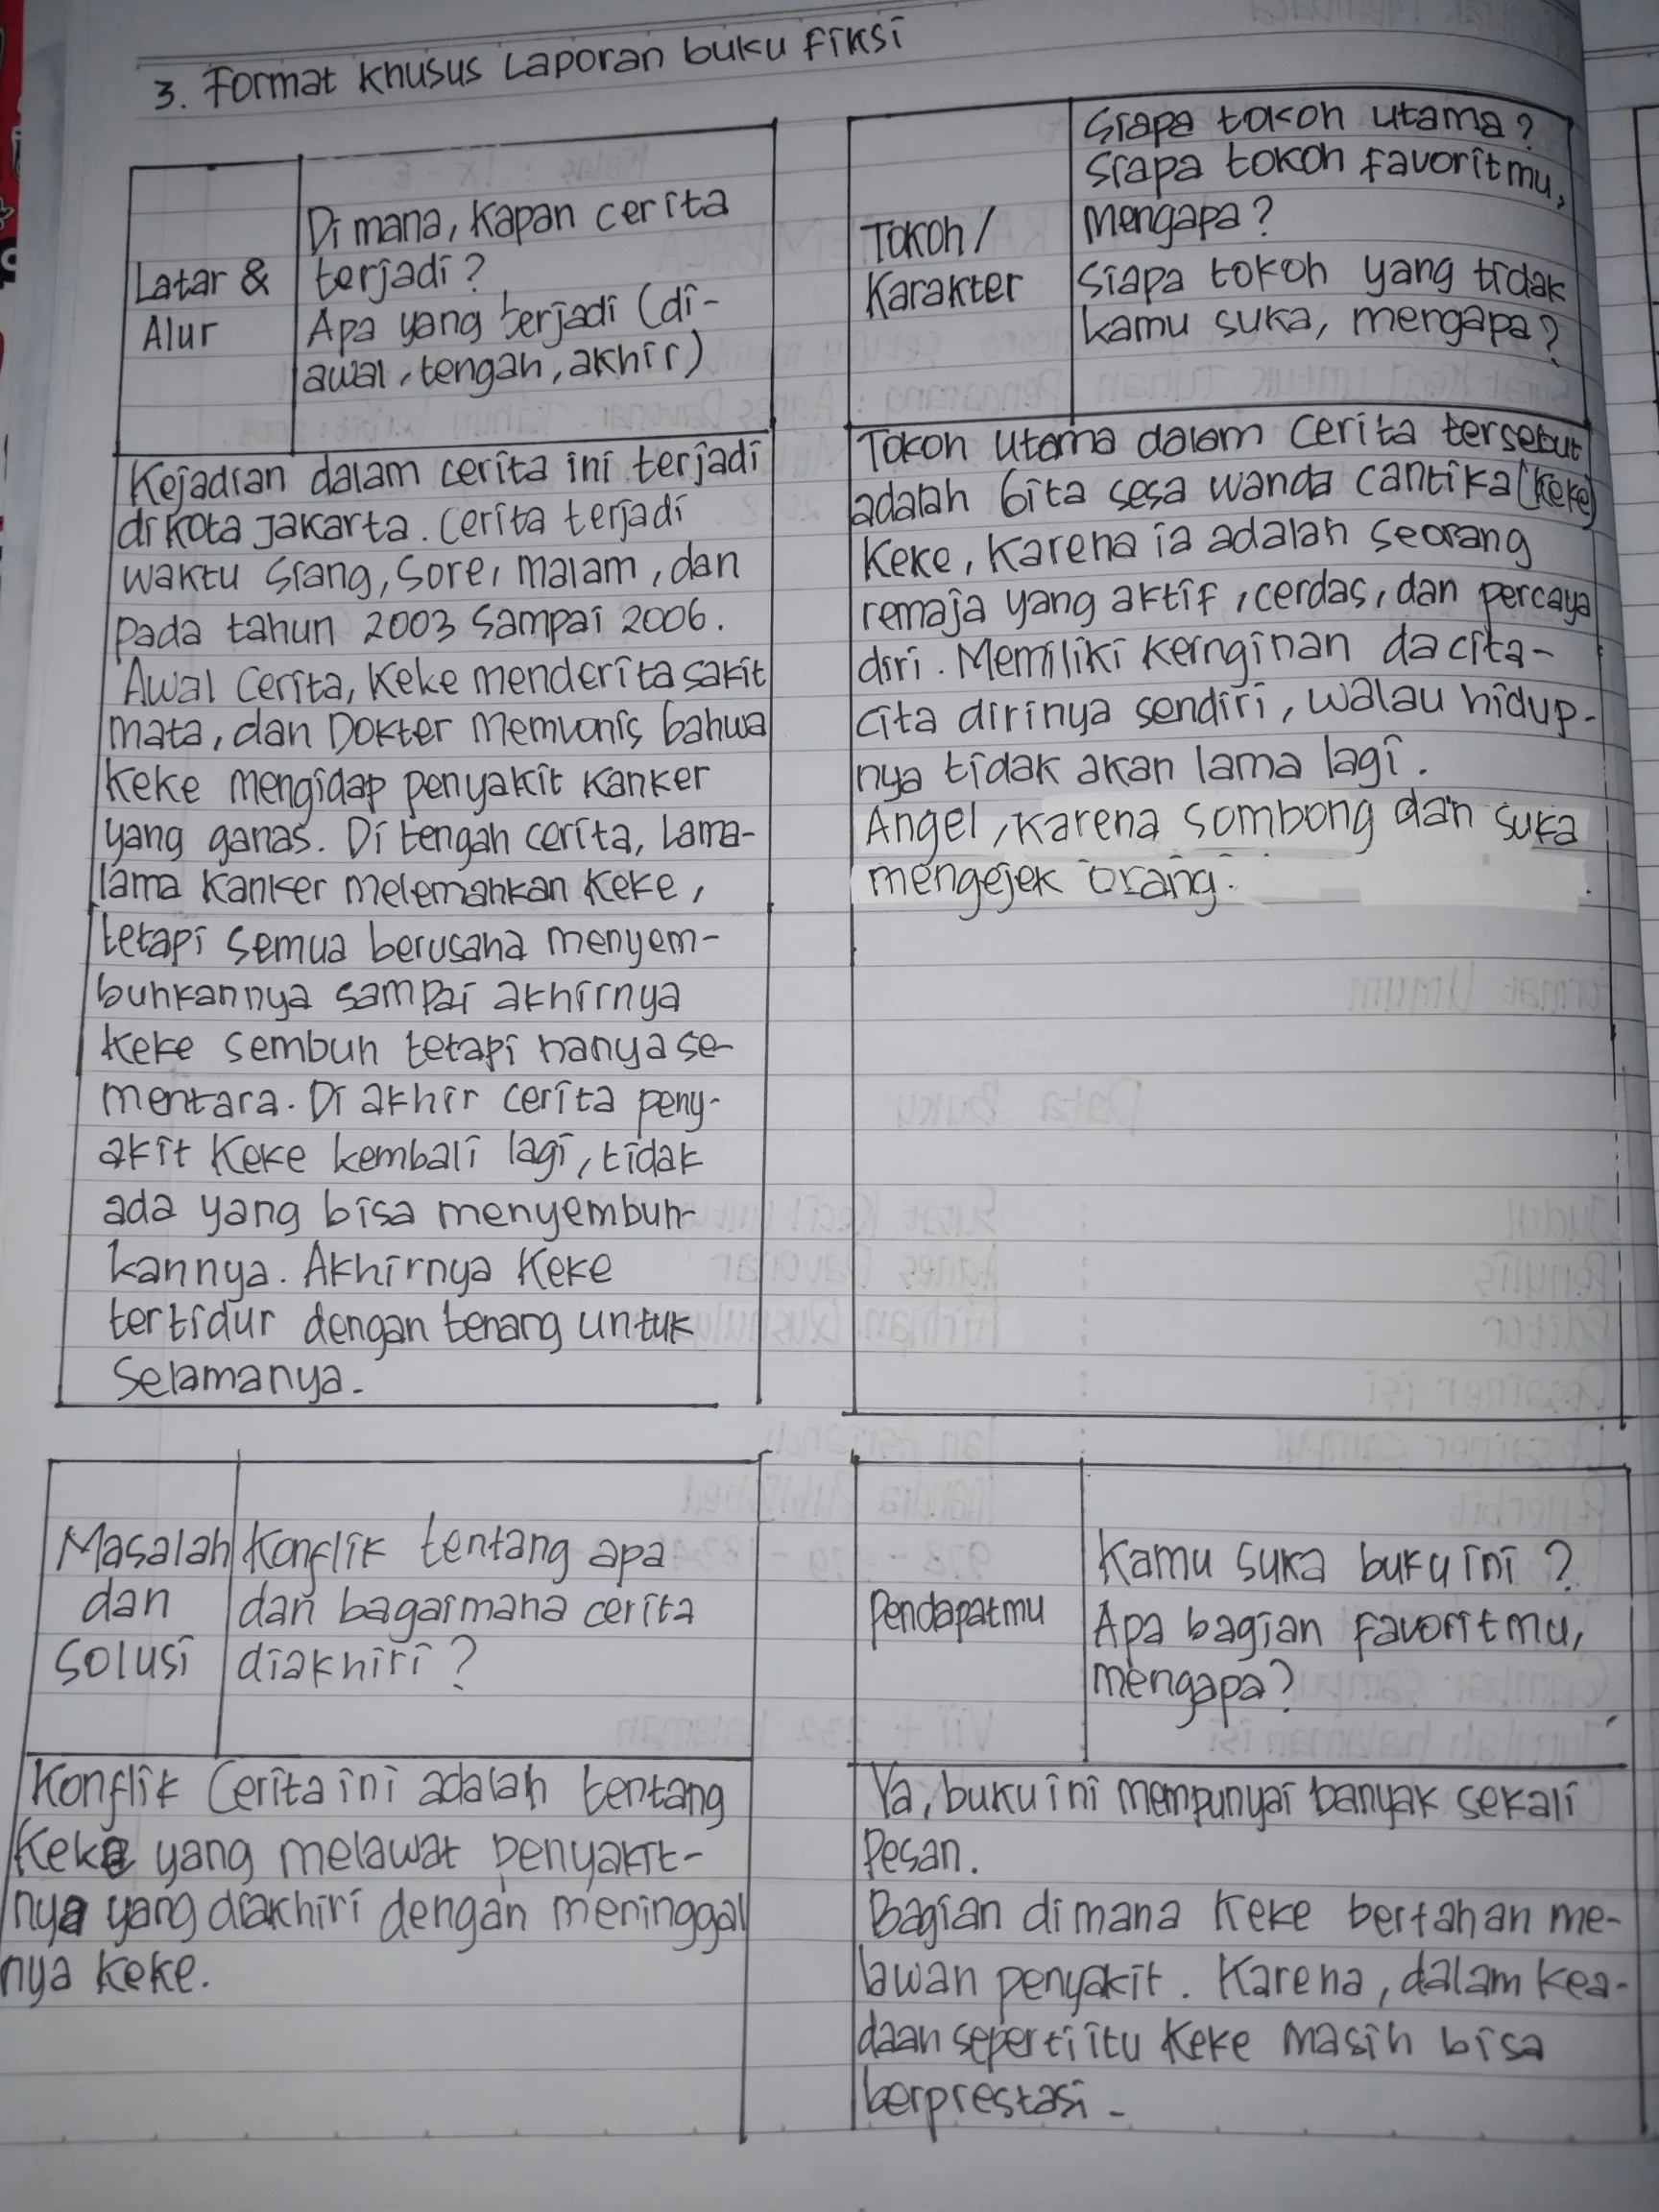 3. Format Khusus Laporan buku fiksi
Latar &
Alur
Di mana, Kapan cerita
terjadi?
Apa yang terjadi (di-
awal, tengah, akhir)
Kejadian dalam cerita ini terjadi
di Kota Jakarta. Cerita terjadi
waktu siang, sore, malam, dan
pada tahun 2003 sampai 2006.
Awal Cerita, Keke menderita sakit
mata, dan Dokter Memvonis bahwa
Keke mengidap penyakit Kanker
yang ganas. Di tengah cerita, Lama-
lama Kanker melemahkan Keke,
tetapi semua berusaha menyem-
buhkannya sampai akhirnya
Keke sembuh tetapi hanya se-
mentara. Di akhir cerita peny-
akit Keke kembali lagi, tidak
ada yang bisa menyembuh-
kannya. Akhirnya Keke
tertidur dengan tenang untuk
Selamanya.
Tokoh/
Karakter
Siapa tokoh utama?
Siapa tokoh favoritmu,
Mengapa?
Siapa tokoh yang tidak
kamu suka, mengapa?
Tokoh Utama dalam Cerita tersebut
adalah Gita sesa wanda cantika (Keke)
Keke, Karena ia adalah seorang
remaja yang aktif, cerdas, dan percaya
diri. Memiliki keinginan da cita-
cita dirinya sendiri, walau hidup-
nya tidak akan lama lagi.
Angel, Karena sombong dan suka
mengejek orang.
Masalah
dan
Solusi
Konflik tentang apa
dan bagaimana cerita
diakhiri?
Konflik Cerita ini adalah tentang
Keke yang melawat penyakit-
nya yang diakhiri dengan meninggal
nya Keke.
Pendapatmu
Kamu suka buku ini?
Apa bagian favoritmu,
mengapa?
Ya, buku ini mempunyai banyak sekali
Pesan.
Bagian dimana Keke bertahan me-
lawan penyakit. Karena, dalam kea-
daan seperti itu Keke masih bisa
berprestasi.